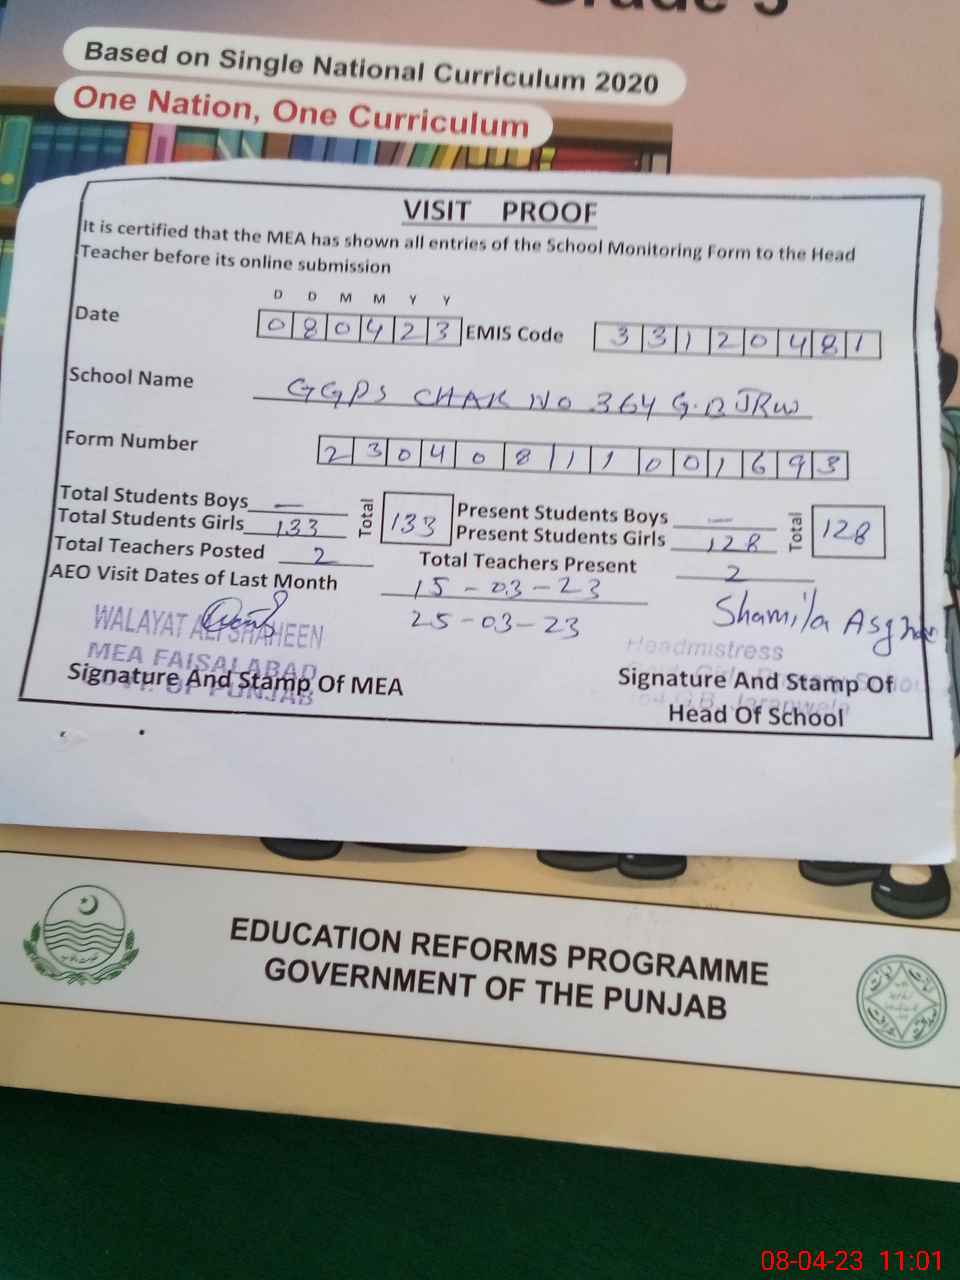 Grade 5
Based on Single National Curriculum 2020
One Nation, One Curriculum
VISIT PROOF
It is certified that the MEA has shown all entries of the School Monitoring Form to the Head
Teacher before its online submission
D D M M Y Y
Date 080423 EMIS Code 33120481
School Name GGPS CHAK NO 364 G.B JRW
Form Number 23040811001693
Total Students Boys — Total 133 Present Students Boys — Total 128
Total Students Girls 133 Present Students Girls 128
Total Teachers Posted 2 Total Teachers Present 2
AEO Visit Dates of Last Month 15-03-23
25-03-23
Shamila Asghar
WALAYAT ALI SHAHEEN
MEA FAISALABAD
GOVT. OF PUNJAB
Headmistress
Signature And Stamp Of MEA
Signature And Stamp Of
Head Of School
EDUCATION REFORMS PROGRAMME
GOVERNMENT OF THE PUNJAB
08-04-23 11:01